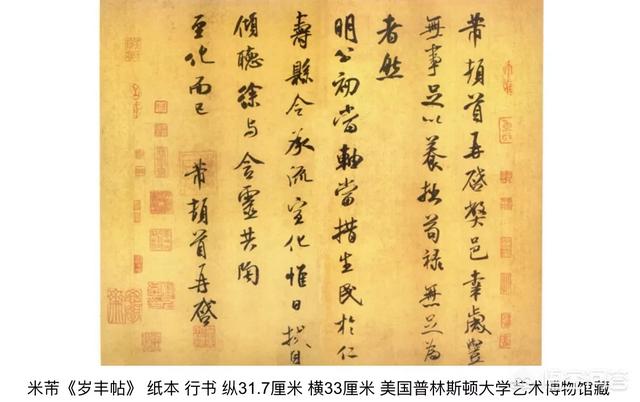 芾頓首再啓弊邑幸歲豐
無事足以養拙苟祿無足為
者然
明公初當軸當措生民於仁
壽縣令承流宣化惟日拭目
傾聽徐與含靈共陶
至化而已
芾頓首再啓
米芾《岁丰帖》 纸本 行书 纵31.7厘米 横33厘米 美国普林斯顿大学艺术博物馆藏